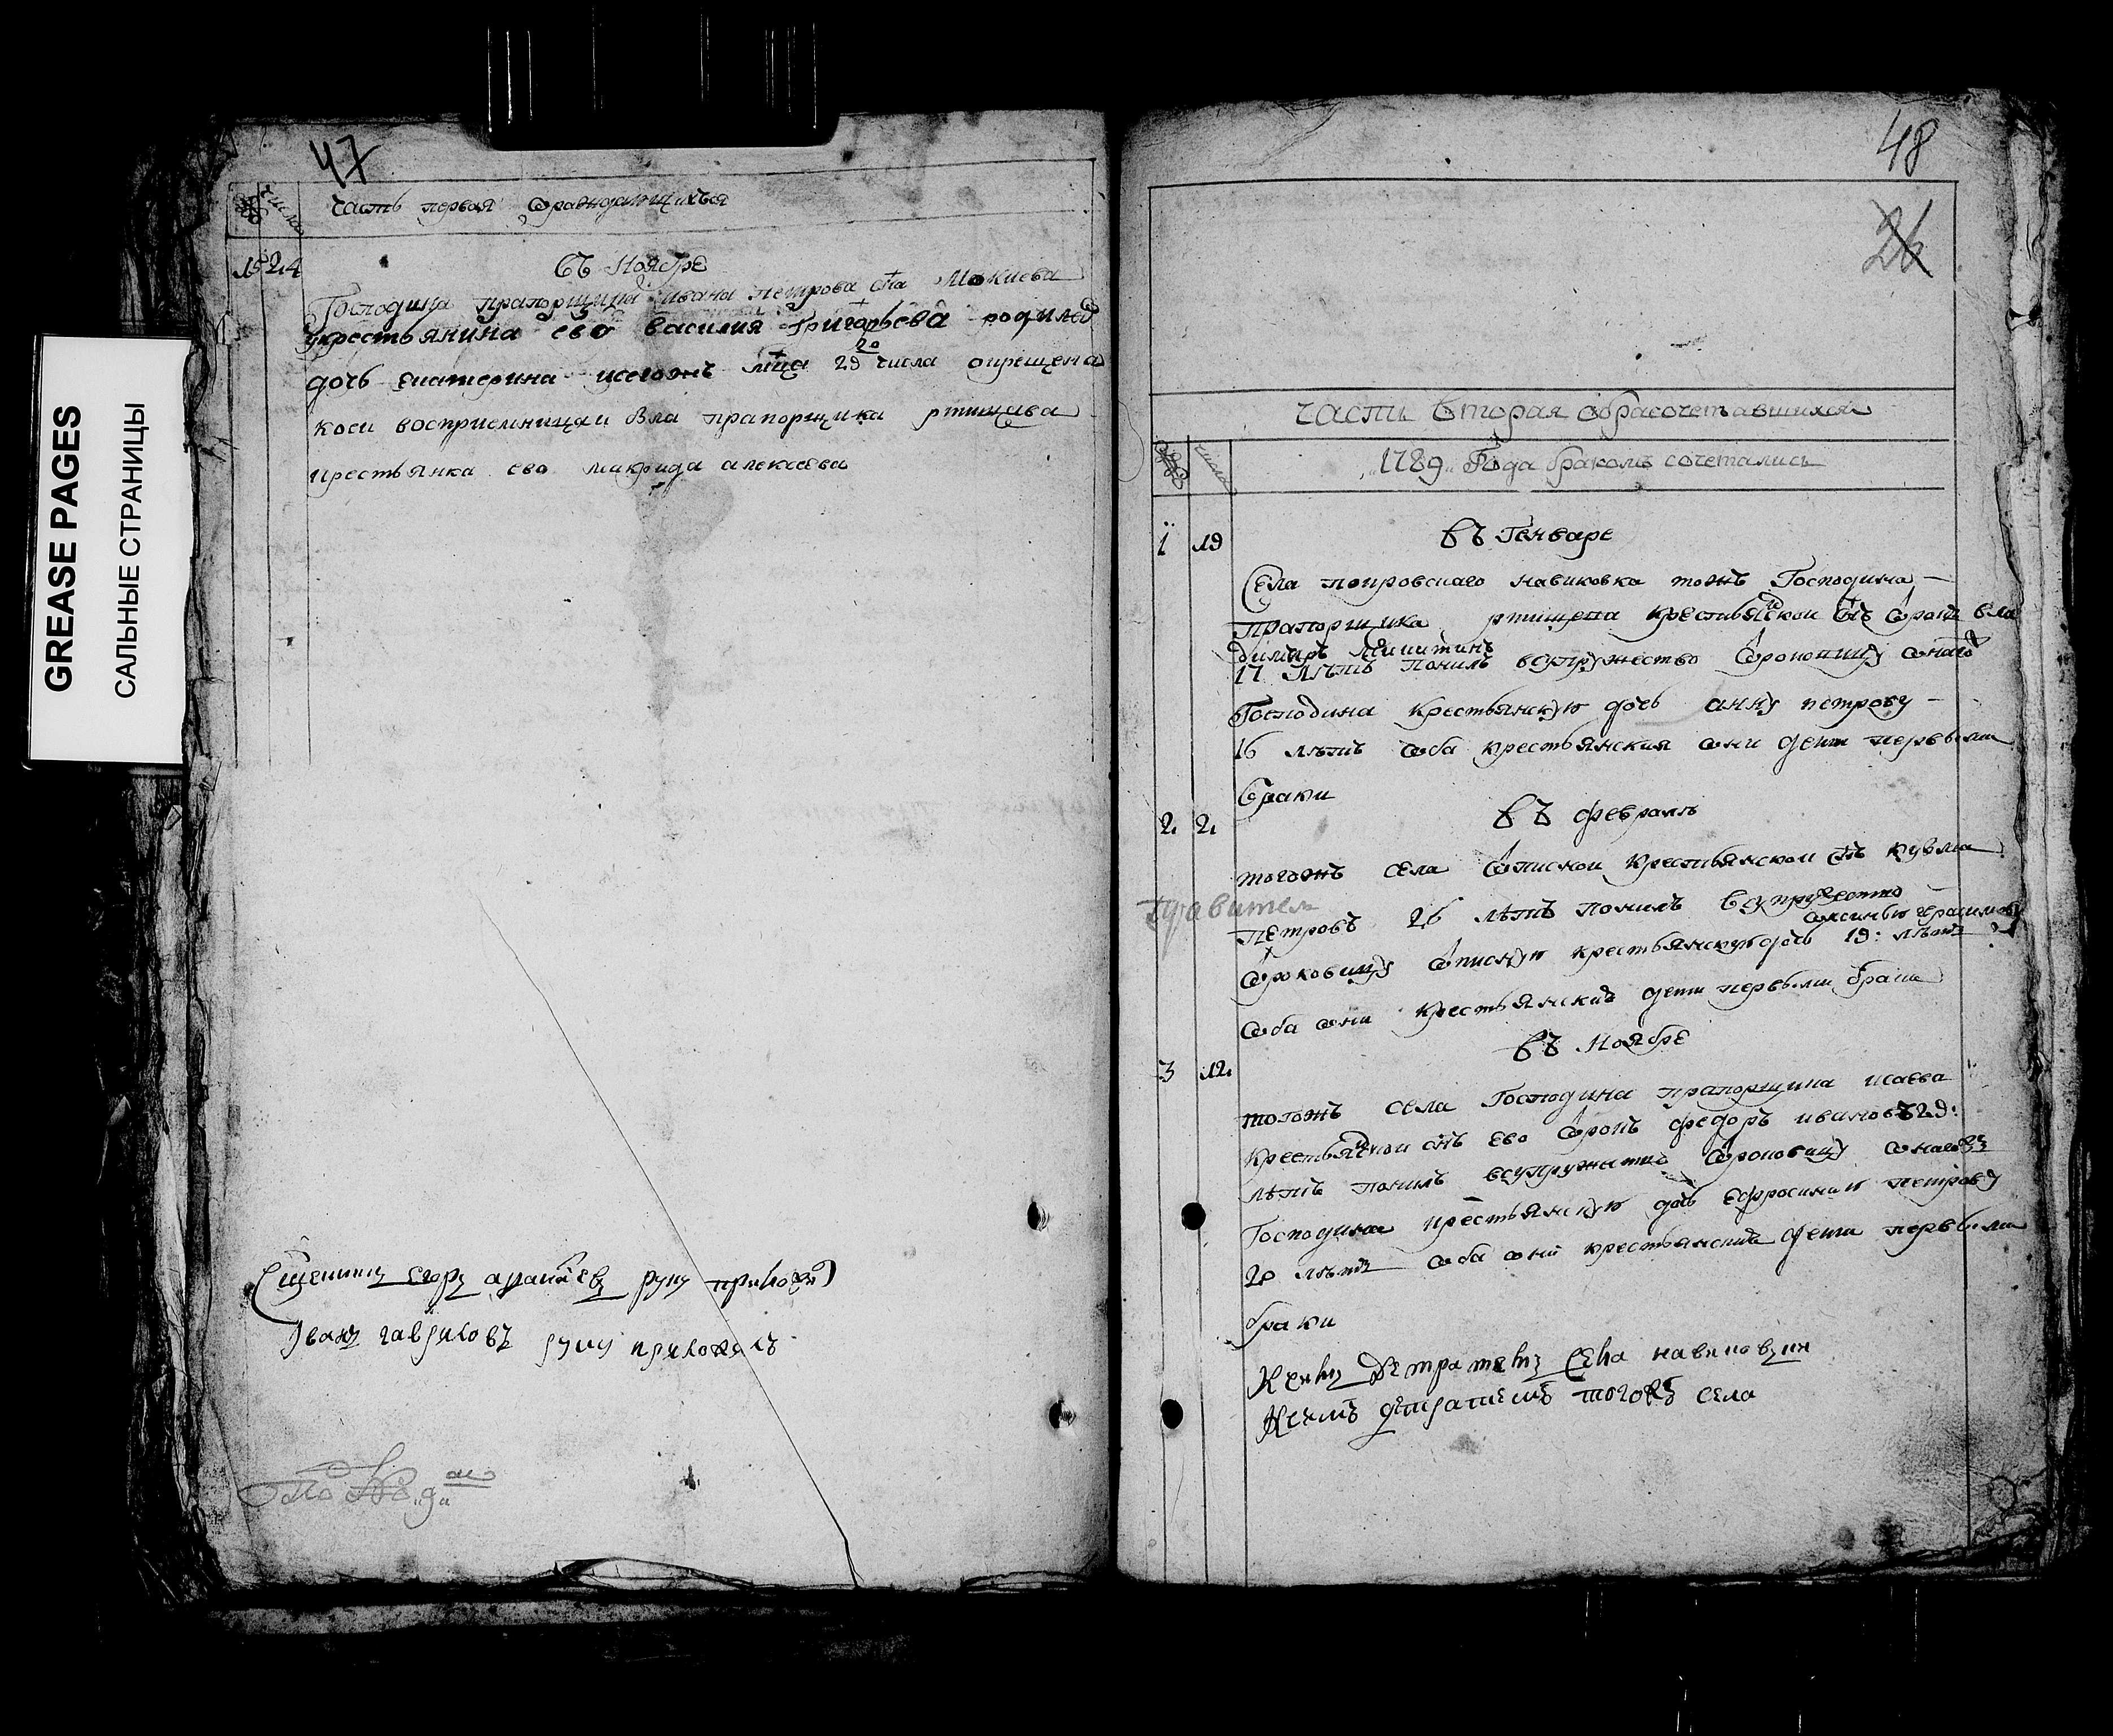 GREASE PAGES
САЛЬНЫЕ СТРАНИЦЫ
47
числа
часть первая ораждающихся
15 24
въ Ноябре
Господина прапорщика ивана петрова сна Мокиева
укрестьянина ево василия Григорьева родилас
дочь екатерина исегожъ мца 29 числа окрещена
коси восприемницаи вла прапорщика ртищева
крестьянка ево макрида алексеева
Сщенникъ егоръ руку приложи
Иванъ гавриловъ руку приложилъ
48
26
часть вторая обрасочетавшихся
числа
1789 Года бракомъ сочетались
1 19
въ Генваре
Села покровскаго навиковка тожъ Господина
прапорщика ртищева крестьянской снъ отрокъ вла
димиръ Никитинъ
17 лѣтъ понялъ всупружество отроковицу онаго
Господина крестьянскую дочь анну петрову
16 лѣтъ оба крестьянския они дети первыми
браки
2. 2.
въ февралѣ
тогожъ села описной крестьянской снъ кузма
петровъ 26 лѣтъ понялъ всупружество
аксинью герасимову
отроковицу описную крестьянскую дочь 19: лѣтъ
оба они крестьянския дети первыми браки
въ Ноябре
3 12.
тогожъ села Господина прапорщика исаева
крестьянской снъ ево отрокъ федоръ ивановъ 29:
лѣтъ понялъ всупружество отроковицу онагожъ
Господина крестьянскую дочь ефросинью петрову
20 лѣтъ оба они крестьянския дети первыми
браки
Села навиковки
тогожъ села